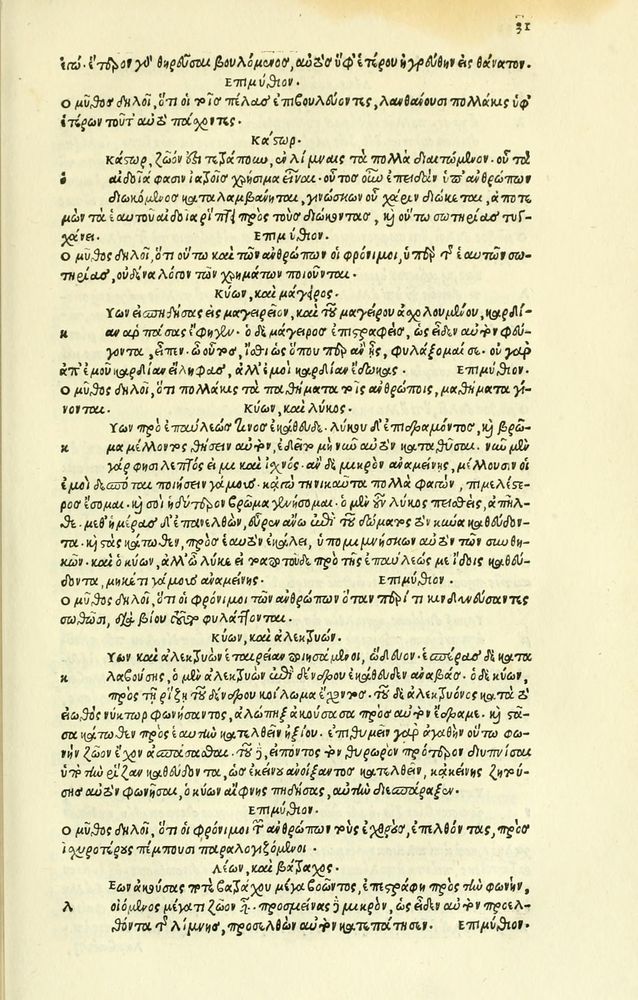 31
ἐγώ. ἕτερον γὸ θηρεῦσαι βουλόμενος, αὐτὸς ὑφ' ἑτέρου ἠγρεύθην εἰς θάνατον.
ΕΠΙΜΎΘΙΟΝ.
Ο μῦθος δηλοῖ, ὅτι οἱ τοῖς πέλας ἐπιβουλεύοντες, λανθάνουσι πολλάκις ὑφ'
ἑτέρων τοῦτ' αὐτὸ πάσχοντες.
Κάστωρ.
Κάστωρ, ζῶόν ὅτι τετράπουν, ἐν λίμναις τὰ πολλὰ διαιτώμενον. οὗ τὰ
ο αἰδοῖά φασιν ἰατροῖς χρήσιμα εἶναι. οὗτος οὖν ἐπειδὰν ὑπ' ἀνθρώπων
διωκόμενος καταλαμβάνηται, γινώσκων οὗ χάριν διώκεται, ἀποτε
μὼν τὰ ἑαυτοῦ αἰδοῖα ῥίπτει πρὸς τοὺς διώκοντας, καὶ οὕτω σωτηρίας τυγ-
χάνει. ΕΠΙΜΎΘΙΟΝ.
Ο μῦθος δηλοῖ, ὅτι οὕτω καὶ τῶν ἀνθρώπων οἱ φρόνιμοι, ὑπὲρ τῆς ἑαυτῶν σω-
τηρίας, οὐδένα λόγον τῶν χρημάτων ποιοῦνται.
Κύων, καὶ μάγειρος.
Υων εἰσπηδήσας εἰς μαγειρεῖον, καὶ τοῦ μαγείρου ἀσχολουμένου, καρδί-
κ αν ἁρπάσας ἔφυγεν. ὁ δὲ μάγειρος ἐπιστραφεὶς, ὡς εἶδεν αὐτὸν φεύ-
γοντα, εἶπεν. ὦ οὗτος, ἴσθι ὡς ὅπου περ ἂν ᾖς, φυλάξομαί σε. οὐ γὰρ
ἀπ' ἐμοῦ καρδίαν εἴληφας, ἀλλ' ἐμοὶ καρδίαν ἔδωκας. ΕΠΙΜΎΘΙΟΝ.
Ο μῦθος δηλοῖ, ὅτι πολλάκις τὰ παθήματα τοῖς ἀνθρώποις, μαθήματα γί-
νονται. Κύων, καὶ λύκος.
Υων πρὸ ἐπαύλεώς τινος ἐκάθευδε. λύκου δ' ἐπιδραμόντος, καὶ βρῶ-
κ μα μέλλοντος θήσειν αὐτὸν, ἐδεῖτο μὴ νῦν αὐτὸν καταθῦσαι. νῦν μὲν
γάρ φησι λεπτός εἰμι καὶ ἰσχνός. ἂν δὲ μικρὸν ἀναμείνῃς, μέλλουσιν οἱ
ἐμοὶ δεσπόται ποιήσειν γάμους. κἀγὼ τηνικαῦτα πολλὰ φαγὼν, πιμελέστε-
ρος ἔσομαι. καὶ σοὶ ἡδύτερον βρῶμα γενήσομαι. ὁ μὲν οὖν λύκος πεισθεὶς, ἀπῆλ-
θε. μεθ' ἡμέρας δ' ἐπανελθὼν, εὗρεν ἄνω ἐπὶ τοῦ δώματος τὸν κύνα καθεύδον-
τα. καὶ στὰς κάτωθεν, πρὸς ἑαυτὸν ἐκάλει, ὑπομιμνήσκων αὐτὸν τῶν συνθη-
κῶν. καὶ ὁ κύων, ἀλλ' ὦ λύκε εἰ τὸ ἀπὸ τοῦδε πρὸ τῆς ἐπαύλεώς με ἴδοις καθεύ-
δοντα, μηκέτι γάμους ἀναμείνῃς. ΕΠΙΜΎΘΙΟΝ.
Ο μῦθος δηλοῖ, ὅτι οἱ φρόνιμοι τῶν ἀνθρώπων ὅταν περί τι κινδυνεύσαντες
σωθῶσι, διὰ βίου τοῦτο φυλάττονται.
Κύων, καὶ ἀλεκτρυών.
Υων καὶ ἀλεκτρυὼν ἑταιρείαν ποιησάμενοι, ὥδευον. ἑσπέρας δὲ κατα
κ λαβούσης, ὁ μὲν ἀλεκτρυὼν ἐπὶ δένδρου ἐκάθευδεν ἀναβάς. ὁ δὲ κύων,
πρὸς τῇ ῥίζῃ τοῦ δένδρου κοίλωμα ἔχοντος. τοῦ δὲ ἀλεκτρυόνος κατὰ τὸ
εἰωθὸς νύκτωρ φωνήσαντος, ἀλώπηξ ἀκούσασα πρὸς αὐτὸν ἔδραμε. καὶ στᾶ-
σα κάτωθεν πρὸς ἑαυτὴν κατελθεῖν ἠξίου. ἐπιθυμεῖν γὰρ ἀγαθὴν οὕτω φω-
νὴν ζῶον ἔχον ἀσπάσασθαι. τοῦ δὲ, εἰπόντος τὸν θυρωρὸν πρότερον διυπνίσαι
ὑπὸ τὴν ῥίζαν καθεύδοντα, ὡς ἐκείνου ἀνοίξαντος κατελθεῖν, κἀκείνης ζητού-
σης αὐτὸν φωνῆσαι, ὁ κύων αἴφνης πηδήσας, αὐτὴν διεσπάραξεν.
ΕΠΙΜΎΘΙΟΝ.
Ο μῦθος δηλοῖ, ὅτι οἱ φρόνιμοι τῶν ἀνθρώπων τοὺς ἐχθροὺς, ἐπελθόντας, πρὸς
ἰσχυροτέρους πέμπουσι παραλογιζόμενοι.
Λέων, καὶ βάτραχος.
Εων ἀκούσας ποτὲ βατράχου μέγα βοῶντος, ἐπεστράφη πρὸς τὴν φωνὴν,
λ οἰόμενος μέγα τι ζῶον εἶναι. προσμείνας δὲ μικρὸν, ὡς εἶδεν αὐτὸν προελ-
θόντα τῆς λίμνης, προσελθὼν αὐτὸν κατεπάτησεν. ΕΠΙΜΎΘΙΟΝ.